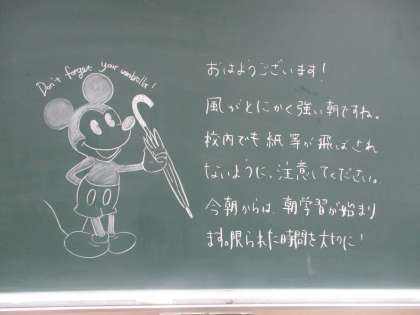 Don't forget your umbrella!
おはようございます!
風がとにかく強い朝ですね。
校内でも紙等が飛ばされ
ないように、注意してください。
今朝からは、朝学習が始まり
ます。限られた時間を大切に!